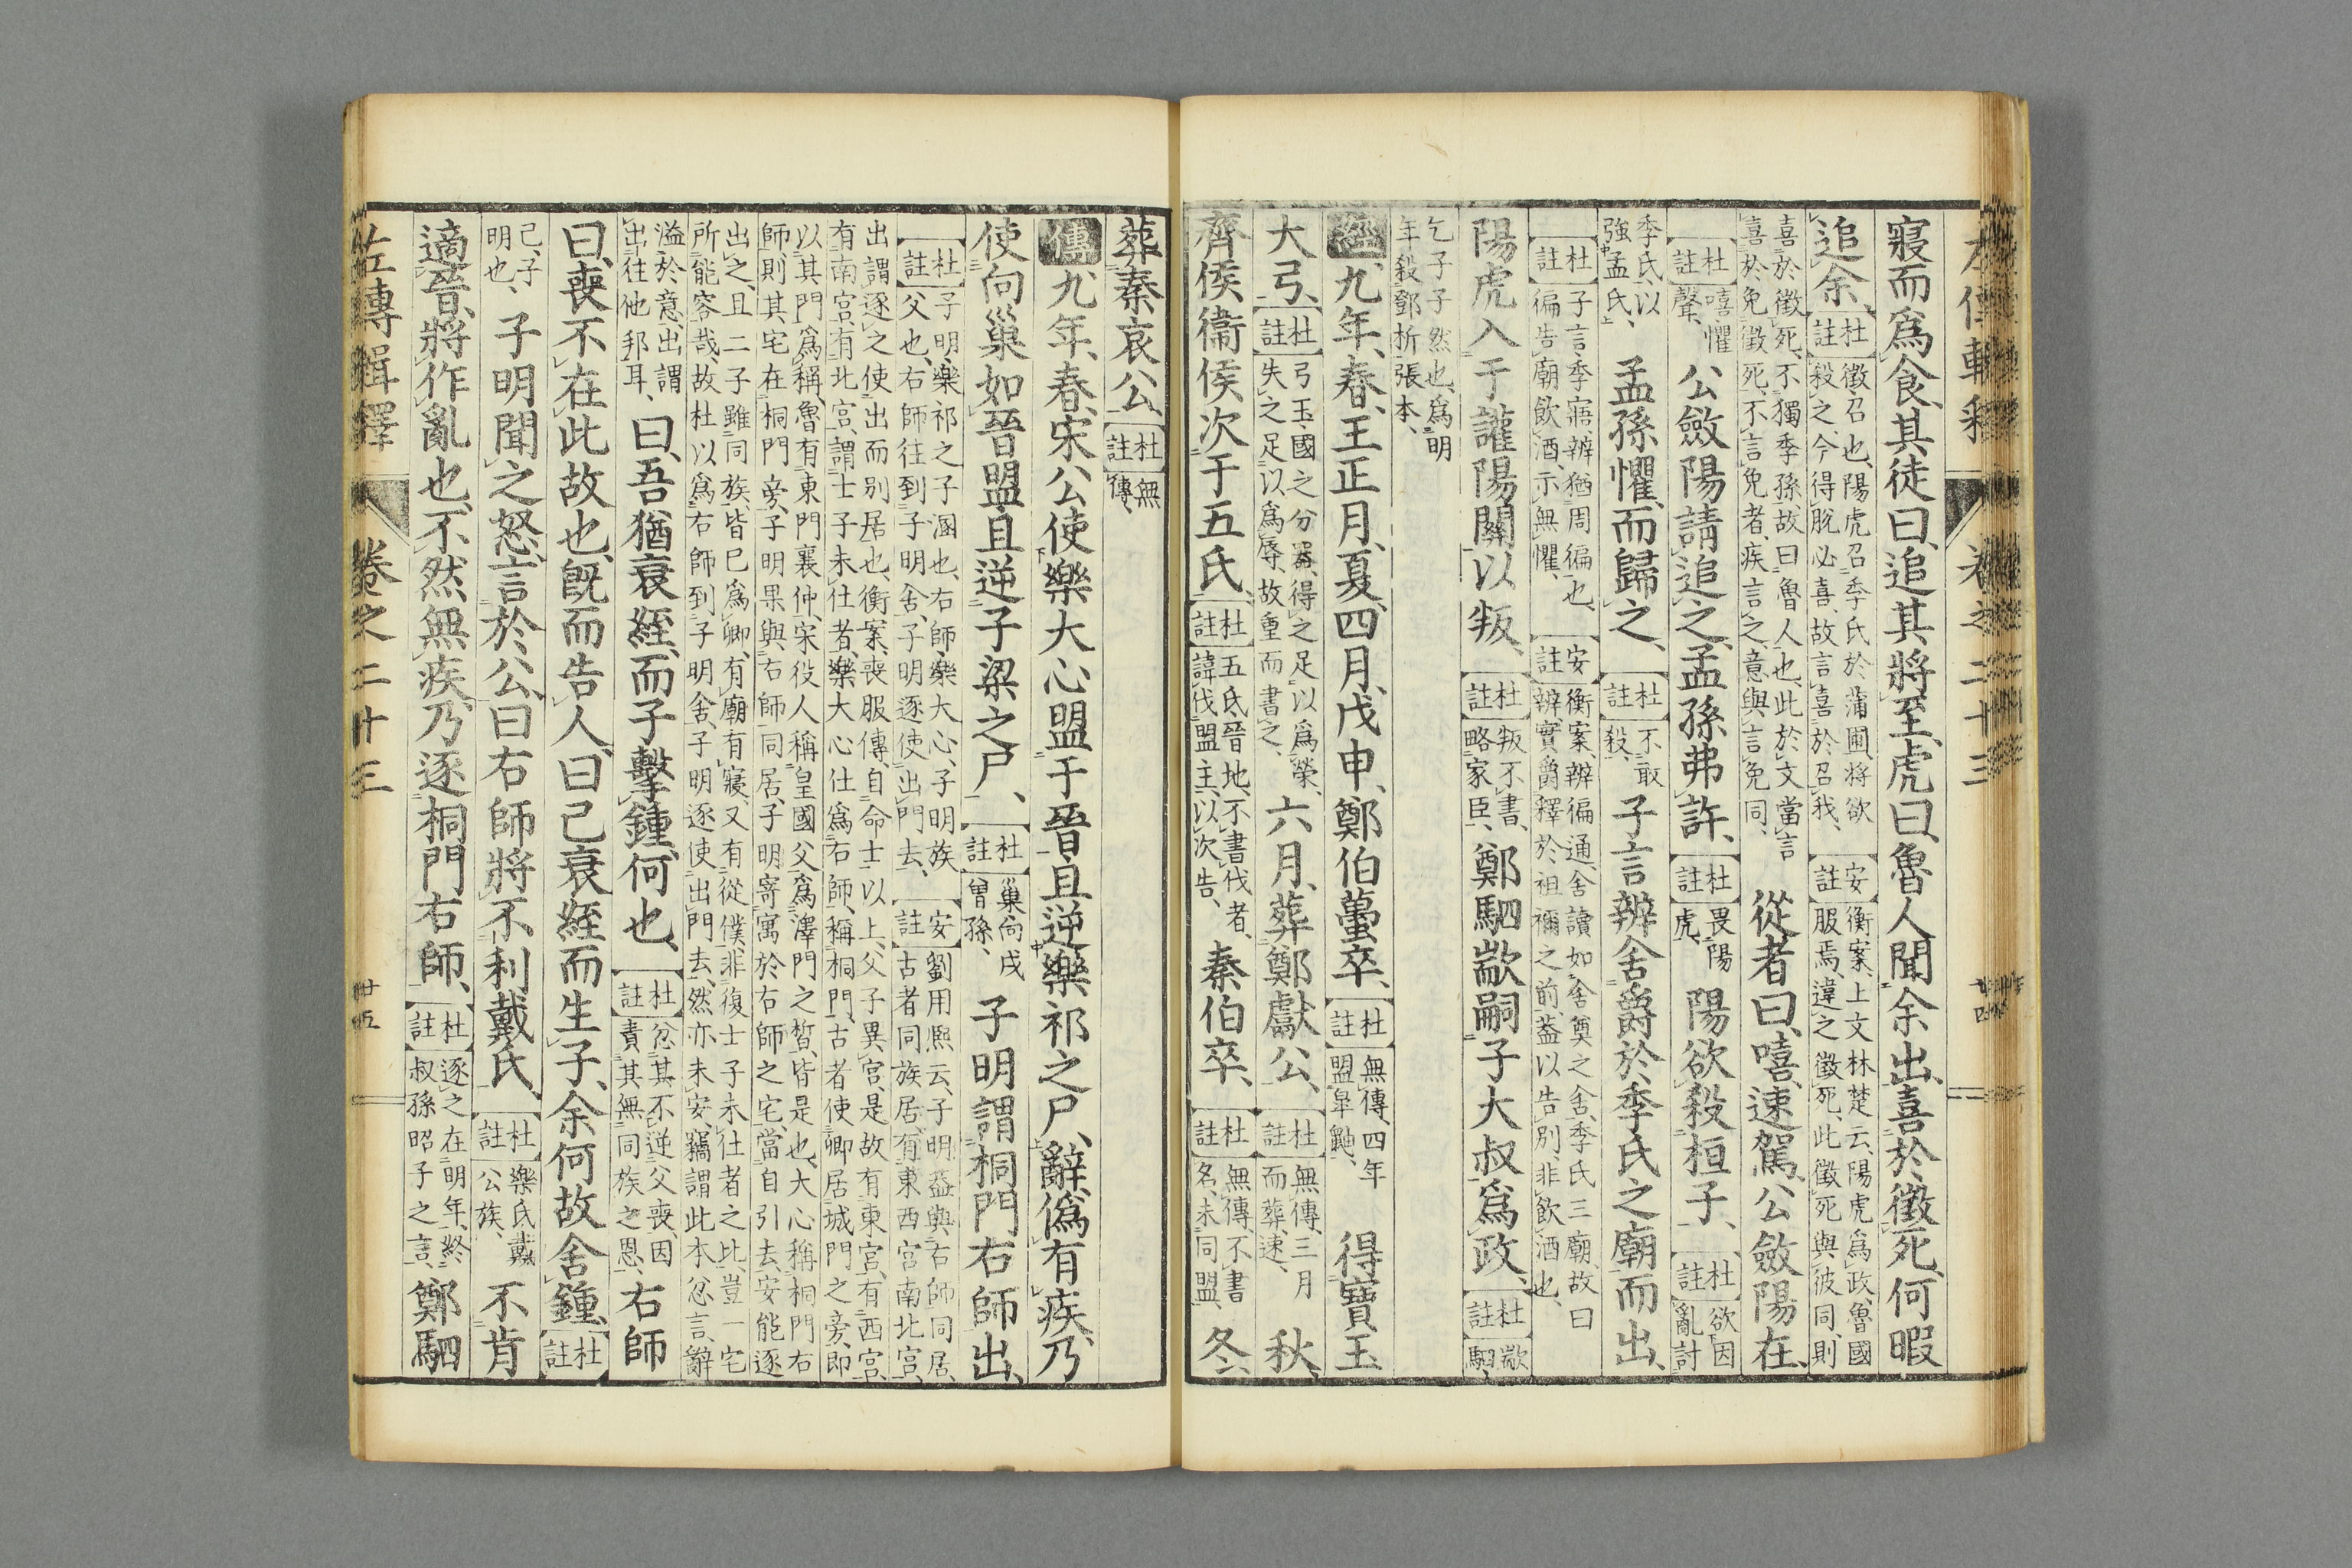 寢而爲食、其徒曰、追其將至、虎曰、魯人聞余出、喜於徵死、何暇
追余、杜註徵召也、陽虎召季氏於蒲圃、將欲殺之、今得脫必喜、故言喜於召我、安註衡案、上文林楚云、陽虎爲政、魯國服焉、違之徵死、此徵死與彼同、則
喜於徵死、不獨季孫、故曰魯人也、此於文當言喜於免徵死、不言免者、疾言之、意與言免同、從者曰、嘻、速駕、公斂陽在、
杜註嘻、懼聲、公斂陽請追之、孟孫弗許、杜註畏陽虎、陽欲殺桓子、杜註欲因亂討
季氏、以強孟氏、孟孫懼、而歸之、杜註不敢殺、子言辨舍爵於季氏之廟而出、
杜註子言、季寤、辨猶周徧也、徧告廟飲酒、示無懼、安註衡案、辨徧通、舍讀如舍奠之舍、季氏三廟、故曰辨、實爵釋於祖禰之前、蓋以告別、非飲酒也、
陽虎入于讙陽關以叛、杜註叛不書、略家臣、鄭駟歂嗣子大叔爲政、杜註歂、駟
乞子子然也、爲明年殺鄧析張本、
經九年、春、王正月、夏、四月、戊申、鄭伯蠆卒、杜註無傳、四年盟皐鼬、得寶玉
大弓、杜註弓玉、國之分器、得之足以爲榮、失之足以爲辱、故重而書之、六月、葬鄭獻公、杜註無傳、三月而葬、速、秋、
齊侯衞侯次于五氏、杜註五氏、晉地、不書伐者、諱伐盟主、以次告、秦伯卒、杜註無傳、不書名、未同盟、冬、
葬秦哀公、杜註無傳、
傳九年、春、宋公使樂大心盟于晉、且逆樂祁之尸、辭、僞有疾、乃
使向巢如晉盟、且逆子梁之尸、杜註巢、向戌曾孫、子明謂桐門右師出、
杜註子明、樂祁之子溷也、右師、樂大心、子明族父也、右師往到子明舍、子明逐使出門去、安註劉用熙云、子明蓋與右師同居、古者同族居、有東西宮南北宮、
出謂逐之使出而別居也、衡案、喪服傳、自命士以上、父子異宮、是故有東宮、有西宮、有南宮、有北宮、謂士子未仕者、樂大心仕爲右師、稱桐門、古者使卿居城門之旁、即
以其門爲稱、魯有東門襄仲、宋役人稱皇國父爲澤門之皙、皆是也、大心稱桐門右師、則其宅在桐門旁、子明果與右師同居、子明寄寓於右師之宅、當自引去、安能逐
出之、且二子雖同族、皆已爲卿、有廟有寢、又有從僕、非復士子未仕者之比、豈一宅所能容哉、故杜以爲右師到子明舍、子明逐使出門去、然亦未安、竊謂此本忿言、辭
溢於意、出謂出往他邦耳、曰、吾猶衰絰、而子擊鍾、何也、杜註忿其不逆父喪、因責其無同族之恩、右師
曰、喪不在此故也、旣而告人曰、己衰絰而生子、余何故舍鍾、杜註
己、子明也、子明聞之怒、言於公曰、右師將不利戴氏、杜註樂氏、戴公族、不肯
適晉、將作亂也、不然無疾、乃逐桐門右師、杜註逐之在明年、終叔孫昭子之言、鄭駟
左傳輯釋 卷之二十三 廿五